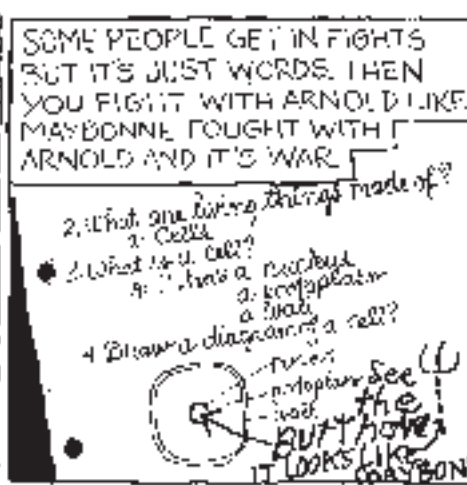 SOME PEOPLE GET IN FIGHTS
BUT IT'S JUST WORDS. THEN
YOU FIGHT WITH ARNOLD LIKE
MAYBONNE FOUGHT WITH
ARNOLD AND IT'S WAR.
2. What are living things made of?
a: Cells
3. What is a cell?
a: It has a nucleus
a protoplasm
a wall
4. Draw a diagram of a cell?
protoplasm
wall
See
the
BUTT HOLE
IT LOOKS LIKE